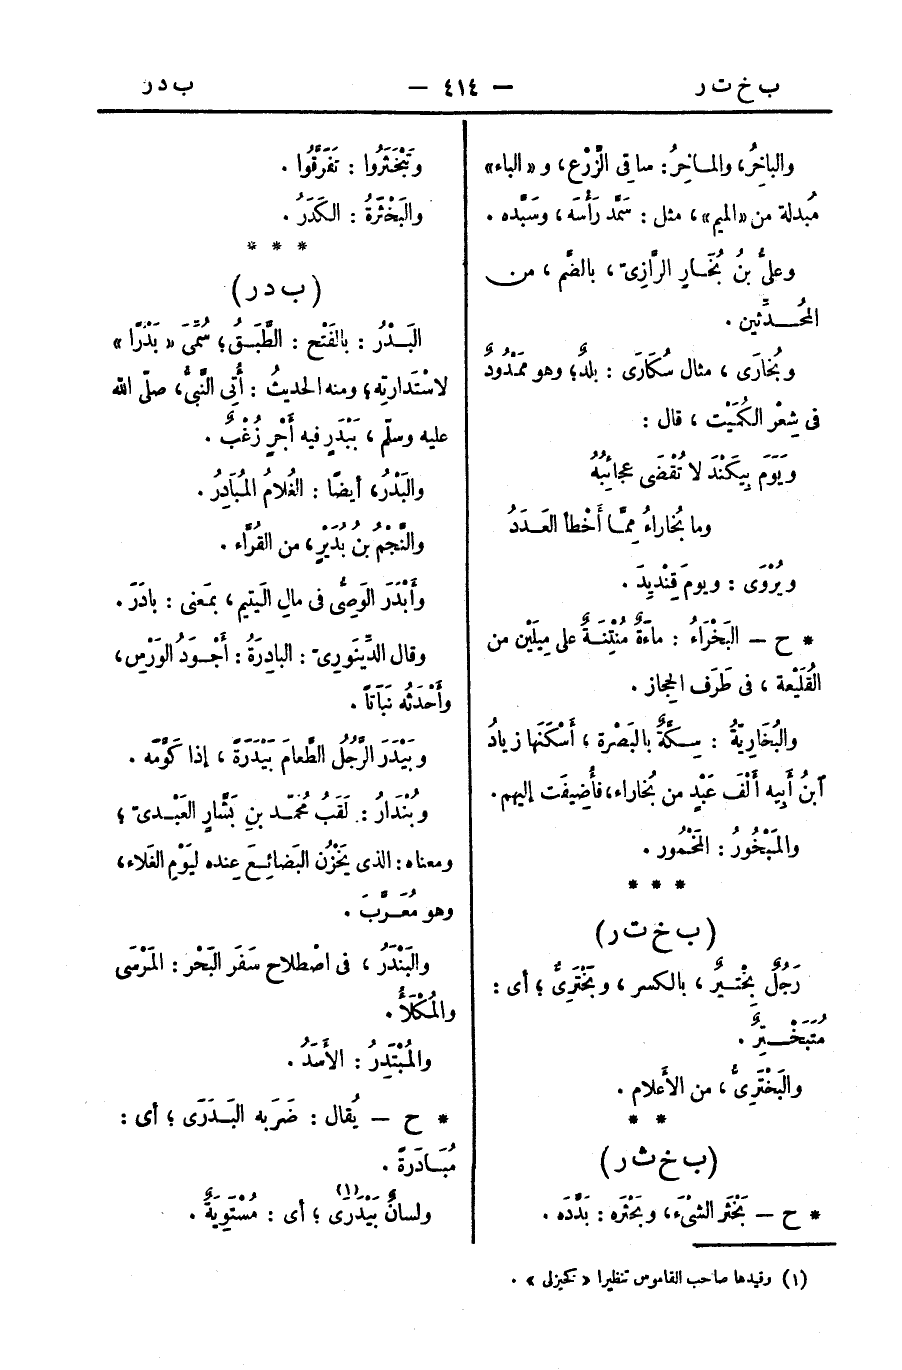 ب خ ت ر — ٤١٤ — ب د ر
والباخِرُ، والماخِرُ: ساقِى الزَّرْع، و «الباء»
مُبدلة من «الميم»، مثل : سَمَّد رَأْسَه ، وسَبَّده .
وعلىُّ بنُ بُخَّارٍ الرَّازِىّ ، بالضَّم ، من
المُحَدِّثين .
وبُخارَى ، مثال سُكَارَى : بلدٌ؛ وهو ممْدُودٌ
فى شِعْر الكُمَيْت ، قال :
ويَوَمَ بِيكَنْد لا تُقْضَى عجائِبُهُ
وما بُخاراءُ مِمَّا أَخْطأ العَدَدُ
ويُرْوَى : ويومَ قِنْدِيدَ .
* ح — البَخْراءُ : ماءَةٌ مُنْتِنَةٌ على مِيلَيْن من
القُلَيْعة ، فى طَرَف الحِجاز .
والبُخَارِيّةُ : سِكَّةٌ بالبَصْرة ؛ أَسْكَنَها زيادُ
ٱبنُ أَبِيه أَلْفَ عَبْدٍ من بُخاراء، فأُضِيفَت إليهم .
والمَبْخُورُ : المَخْمُور .
* * *
(ب خ ت ر)
رَجُلٌ بِخْتِيرٌ ، بالكسر ، وبَخْتَرِىٌّ ؛ أى :
مُتَبَخْتِرٌ .
والبَخْتَرِىُّ ، من الأَعلام .
* *
(ب خ ث ر)
* ح — بَخْثَر الشىْءَ، وبَحْثَره : بَدَّدَه .
وتَبَخْثَرُوا : تَفَرَّقُوا .
والبَخْثَرَةُ : الكَدَرُ .
* * *
(ب د ر)
البَدْرُ : بالفَتْح : الطَّبَقُ؛ سُمِّىَ «بَدْرًا»
لاسْتدارتِه؛ ومنه الحديثُ : أُتِىَ النَّبىُّ، صلّى الله
عليه وسلّم ، بِبَدْرٍ فيه أَجْرٍ زُغْبٌ .
والبَدْرُ، أيضًا : الغُلامُ المُبَادِرُ .
والنَّجْمُ بنُ بُدَيْرٍ، من القُرَّاء .
وأَبْدَرَ الوَصِىُّ فى مالِ اليَتيم، بمَعنى : بادَرَ .
وقال الدِّينَورِىّ : البادِرَةُ : أَجْوَدُ الوَرْسِ،
وأَحْدَثُه نَبَاتاً .
وبَيْدَرَ الرَّجُلُ الطَّعامَ بَيْدَرَةً ، إذا كَوَّمَه .
وبُنْدَارُ : لَقَبُ مُحمّد بنِ بَشَّارٍ العَبْدِىّ ؛
ومعناه : الذى يَخْزُن البَضائِعَ عنده ليَوْمِ الغَلاء،
وهو مُعَرَّبَ .
والبَنْدَرُ ، فى اصْطلاح سَفَر البَحْر : المَرْسَى
والمُكَلَّأُ .
والمُبْتَدِرُ : الأَسَدُ .
* ح — يُقال : ضَرَبه البَدَرَى ؛ أى :
مُبَادَرةً .
ولسانٌ بَيْدَرَى (١) ؛ أى : مُسْتَوِيَةٌ .
(١) وقيدها صاحب القاموس تنظيرا «كخيزلى» .